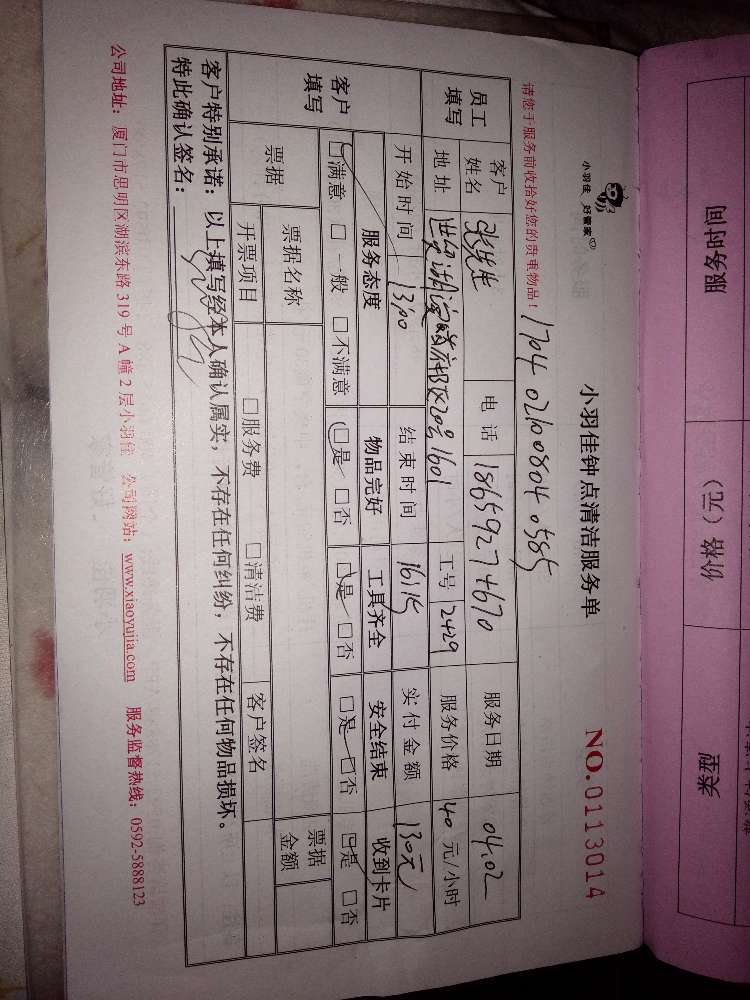 小羽佳 好管家
小羽佳钟点清洁服务单
NO.0113014
请您于服务前收拾好您的贵重物品！
1704 02100804 0585
员工填写 客户姓名 张先生 电话 18659274670 服务日期 04.02
地址 世贸湖滨首府B区20号1601 工号 2429 服务价格 40 元/小时
客户填写 开始时间 13:00 结束时间 16:15 实付金额 130元
服务态度 物品完好 工具齐全 安全结束 收到卡片
□满意 □一般 □不满意 □是 □否 □是 □否 □是 □否 □是 □否
票据 票据名称 票据金额
开票项目 □服务费 □清洁费 客户签名
客户特别承诺：以上填写经本人确认属实，不存在任何纠纷，不存在任何物品损坏。
特此确认签名：
公司地址：厦门市思明区湖滨东路 319 号 A 幢 2 层小羽佳 公司网站：www.xiaoyujia.com 服务监督热线：0592-5888123
服务时间 价格（元） 类型